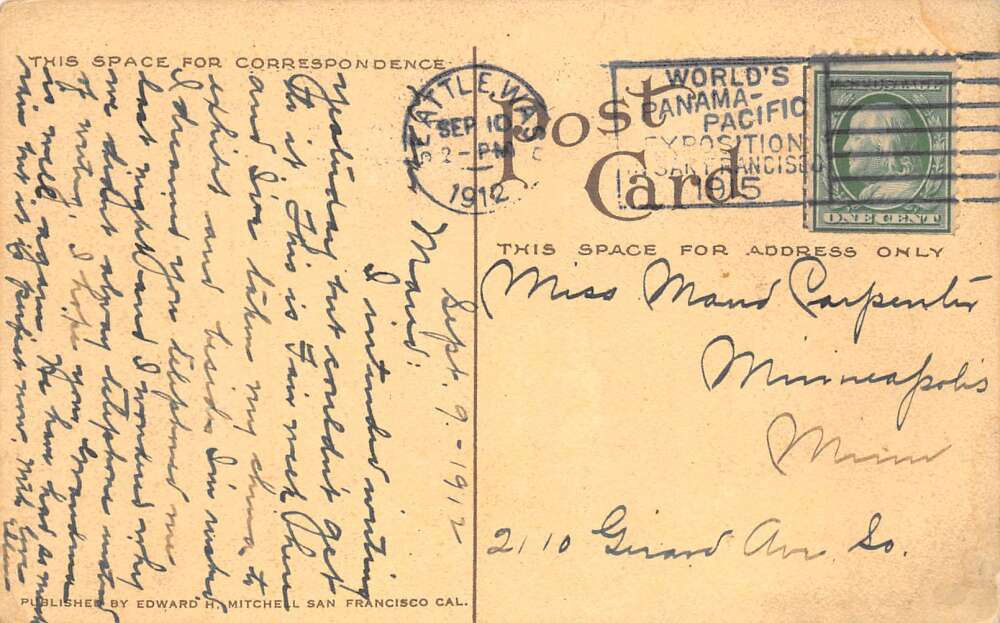 THIS SPACE FOR CORRESPONDENCE
Post
Card
SEATTLE, WASH
SEP 10
2 - PM
1912
WORLD'S
PANAMA-
PACIFIC
EXPOSITION
IN SAN FRANCISCO
1915
ONE CENT
THIS SPACE FOR ADDRESS ONLY
Sept. 9 - 1912
Dear Maud:
I intended writing
yesterday but couldn't get
to it. This is Fair week here
and I've taken my china to
exhibit and besides I'm rushed
I dreamed you telephoned me
last night and I wondered why
we didn't always telephone instead
of writing. I hope your Grandma
is well again. We have had so much
rain but it is perfect now. With love
Miss Maud Carpenter
Minneapolis
Minn
2110 Girard Ave So.
PUBLISHED BY EDWARD H. MITCHELL SAN FRANCISCO CAL.